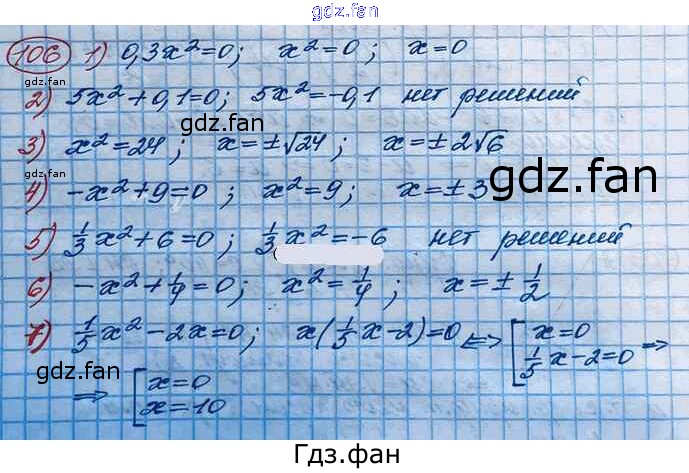 gdz.fan
106 1) 0,3x²=0; x²=0; x=0
gdz.fan
2) 5x²+0,1=0; 5x²=-0,1 нет решений
gdz.fan
3) x²=24; x=±√24; x=±2√6
gdz.fan
4) -x²+9=0; x²=9; x=±3
5) 1/3x²+6=0; 1/3x²=-6 нет решений
6) -x²+1/4=0; x²=1/4; x=±1/2
7) 1/5x²-2x=0; x(1/5x-2)=0 <=> [x=0
1/5x-2=0 =>
gdz.fan
=> [x=0
x=10
gdz.fan
Гдз.фан